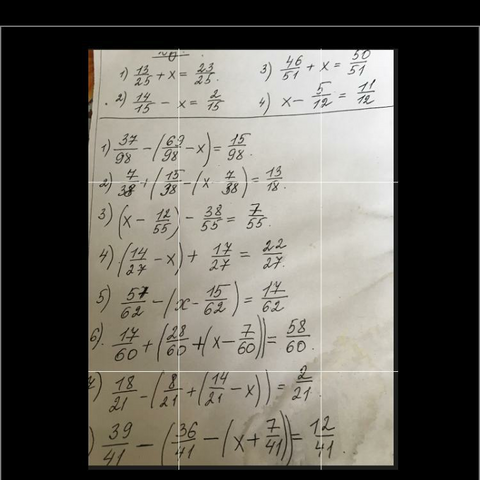 1) 13/25 + x = 23/25   3) 46/51 + x = 50/51
2) 14/15 - x = 2/15   4) x - 5/12 = 11/12
1) 37/98 - (69/98 - x) = 15/98.
2) 7/38 + (15/38 - (x 7/38) = 13/18.
3) (x - 12/55) - 38/55 = 7/55.
4) (14/27 - x) + 17/27 = 22/27.
5) 57/62 - (x - 15/62) = 17/62
6). 17/60 + (28/60 + (x - 7/60)) = 58/60.
7) 18/21 - (8/21 + (14/21 - x)) = 2/21.
) 39/41 - (36/41 - (x + 7/41)) = 12/41.